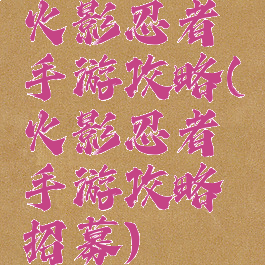 火影忍者
手游攻略(
火影忍者
手游攻略
招募)